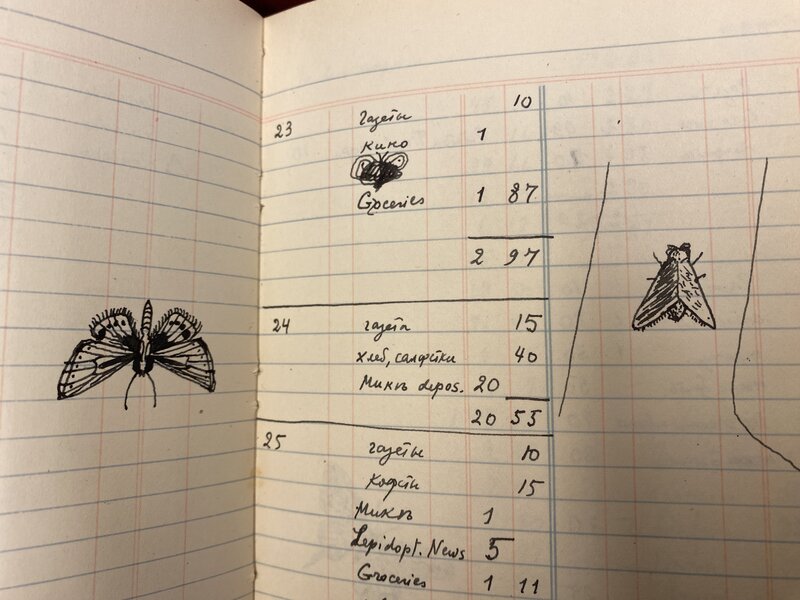 23 газеты 10
кино 1
Groceries 1 87
2 97
24 газета 15
хлеб, салфетки 40
Микъ depos. 20
20 55
25 газеты 10
15
Микъ 1
Lepidopt. News 5
Groceries 1 11